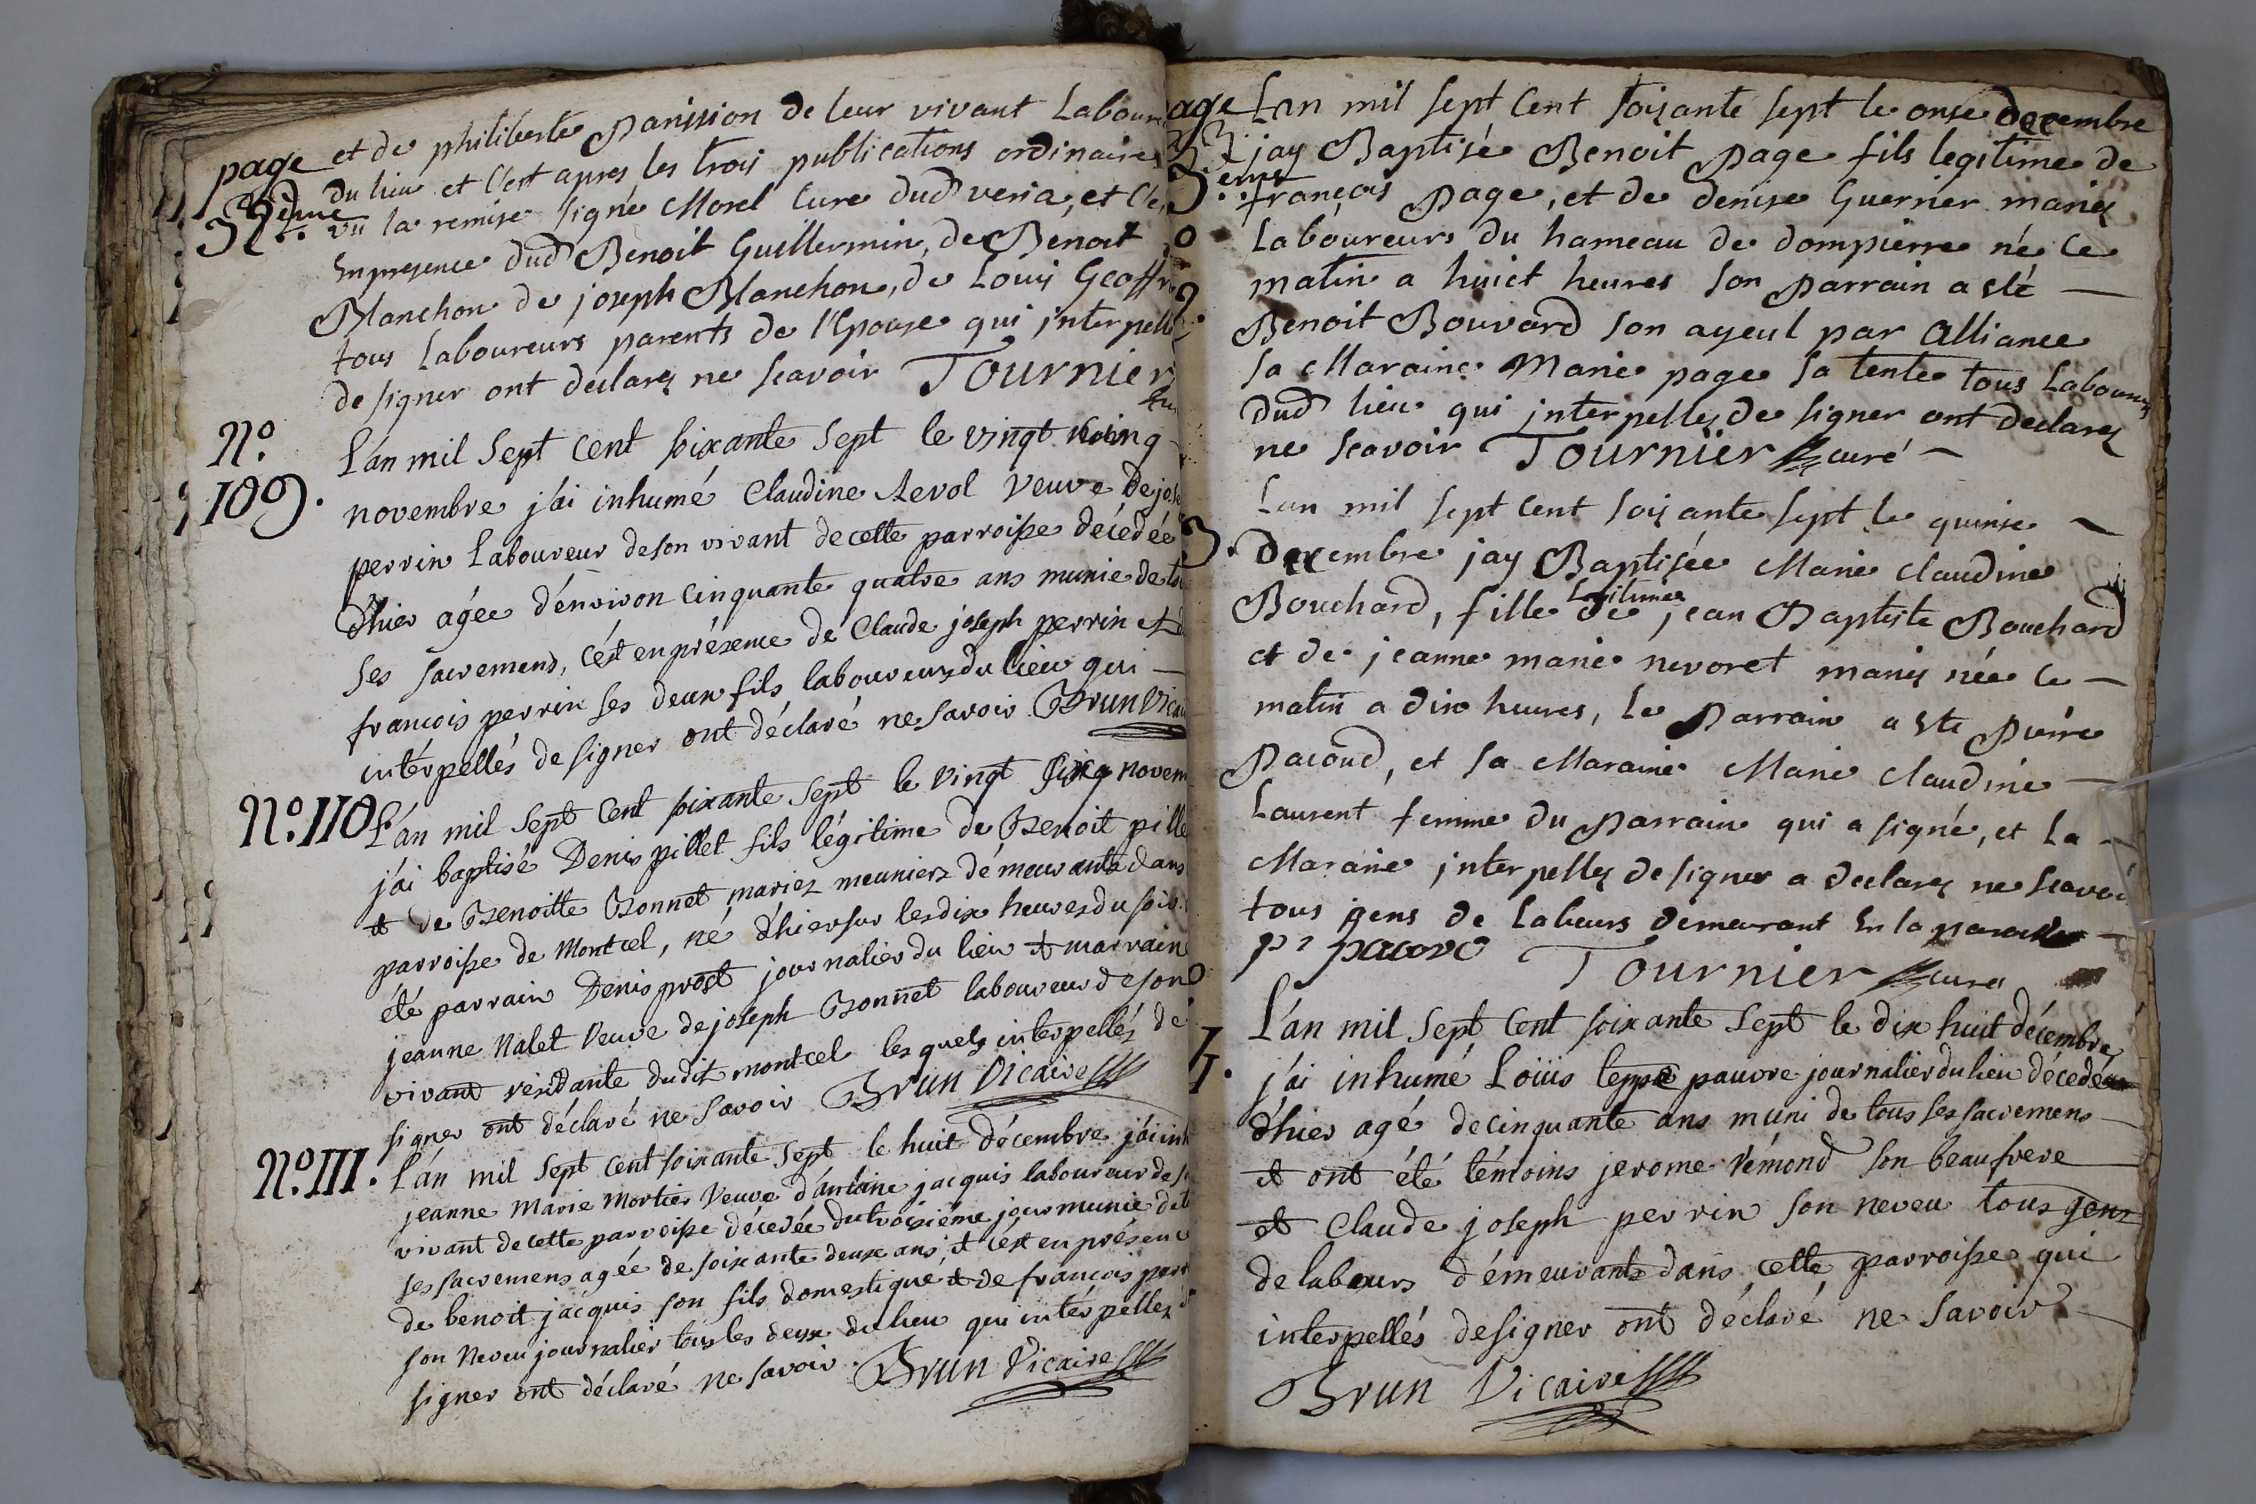 page et de philiberte Parission de leur vivant Labour
32eme du lieu et c'est apres les trois publications ordinaires
vu la remise signé Morel Cure dud veria, et
En presence dud Benoit Guillermin, de Benoit
Blanchon de joseph Blanchon, de Louis Geoffr
tous Laboureurs parents de l'Epouse qui interpell
de signer ont declarez ne scavoir Tournier
No. 109.
L'an mil Sept cent soixante Sept le vingt cinq
novembre j'ai inhumé Claudine Revol veuve de jos
perrin Laboureur de son vivant de cette parroisse décedée
d'hier agée d'environ cinquante quatre ans munie de
ses sacremens, c'ést en présence de Claude joseph perrin et
francois perrin ses deux fils laboureurs du lieu qui —
intérpellés de signer ont déclaré ne savoir Brun Vicai
No. 110.
L'an mil Sept Cent soixante Sept le vingt novem
j'ai baptisé Denis pillet fils légitime de Benoit pille
et de Benoitte Bonnet mariez meuniers démeurants dans
parroisse de Montcel, né d'hier sur les dix heures du soir
été parrain Denis prost journalier du lieu et marraine
jeanne Nalet veuve de joseph Bonnet laboureur de son
vivant résidante dudit montcel lesquels interpellés de
signer ont déclaré ne savoir Brun Vicaire
No. 111.
L'an mil Sept cent soixante Sept le huit décembre j'ai inh
jeanne Marie Mortier veuve d'antoine jacquis laboureur de s
vivant de cette parroisse décedée du troisiéme jour munie de t
ses sacremens agée de soixante deux ans, et c'ést en présenc
de benoit jacquis son fils domestique et de francois perr
son Neveu journalier tous les deux du lieu qui intérpellez
signer ont déclaré ne savoir. Brun Vicaire
page Lan mil sept Cent soixante sept le onse decembre
33eme jay Baptisée Benoit page fils legitime de
françois page, et de denise Guerrier mariez
Laboureurs du hameau de dompierre né Ce
matin a huict heures son parrain a esté —
Benoit Bouvard son ayeul par alliance
sa Maraine Marie page sa tente tous Laboureurs
dud lieu qui interpellez de signer ont declarez
ne scavoir Tournier curé —
Lan mil sept Cent soixante sept le quinse —
Decembre jay Baptisée Marie Claudine
Bouchard, fille Legitimee de jean Baptiste Bouchard
et de jeanne marie nevoret mariez née Ce —
matin a dix heures, Le parrain a este pierre
Pacoud, et sa Maraine Marie Claudine —
Laurent femme du parrain qui a signé, et La —
Maraine interpellez de signer a declarez ne scavoi
tous gens de Labeurs demeurant En la
pr pacoud Tournier curé
L'an mil Sept Cent soixante Sept le dix huit décembre
j'ai inhumé Loüis pauvre journalier du lieu décedé
d'hier agé de cinquante ans muni de tous ses sacremens —
et ont été témoins jerome Rémond son beaufrere
et Claude joseph perrin son neveu tous gens
de labeurs démeurants dans cette parroisse qui
interpellés de signer ont déclaré ne savoir
Brun Vicaire